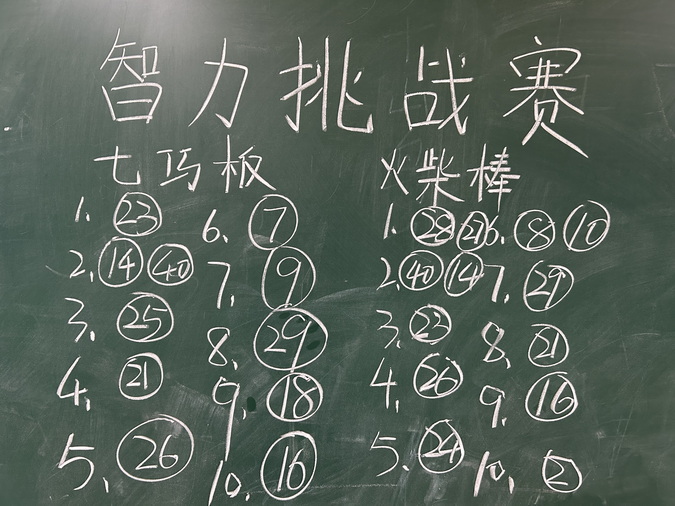 智力挑战赛
七巧板 火柴棒
1. 23 6. 7 1. 28 21 6. 8 10
2. 14 40 7. 9 2. 40 14 7. 29
3. 25 8. 29 3. 23 8. 21
4. 21 9. 18 4. 26 9. 16
5. 26 10. 16 5. 24 10. 2